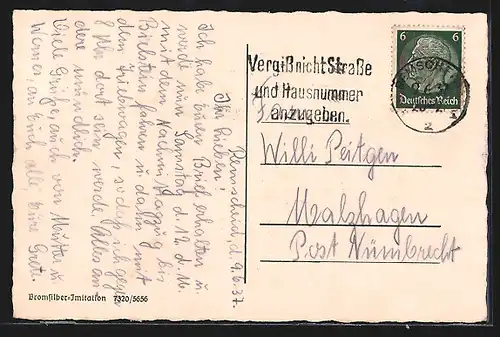 Remscheid, d. 9.6.37.
Ihr Lieben!
Ich habe Euren Brief erhalten u.
werde nun Samstag d. 12. d. M.
mit dem Nachm. bis
Bielstein fahren u. dann mit
dem Triebwagen, sodaß ich gegen
8 Uhr dort sein werde. Alles an-
dere mündlich.
Viele Grüße, auch von Mutter u.
Werner, an Euch alle, Eure Gret.
Bromsilber-Imitation 7320/5656
Vergiß nicht Straße
und Hausnummer
anzugeben.
6 6
Deutsches Reich
Willi Peitgen
Malzhagen
Post Nümbrecht